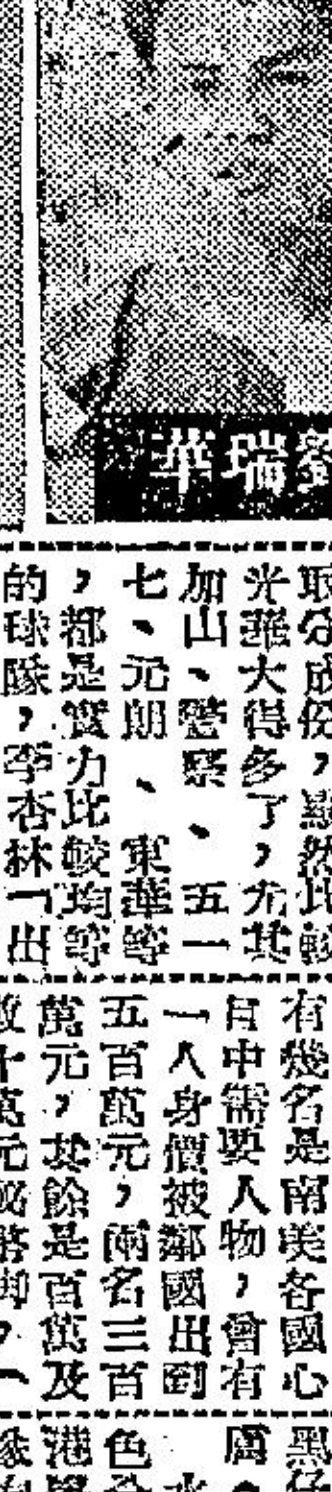 劉瑞華
取分成份，顯然比較
光華大得多了，尤其
加山、警察、五一
七、元朗、東華等
，都是實力比較均等
的球隊，李杏林一出
有幾名是南美各國心
目中需要人物，曾有
一人身價被鄰國出到
五百萬元，兩名三百
萬元，其餘是百萬及
十萬元
黑仔
屬。
色
港